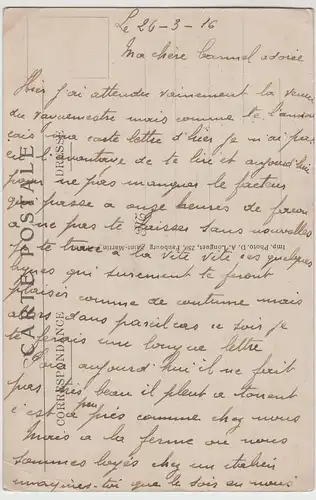 Le 26-3-16
Ma chère Carmel adorée
Hier j'ai attendu vainement la venue
du vaguemestre mais comme te l'annon
çais ma carte lettre d'hier je n'ai pas
eu l'avantage de te lire et aujourd'hui
pour ne pas manquer le facteur
qui passe a onze heures de façon
a ne pas te laisser sans nouvelles
je te trace a la vite vite ces quelques
lignes qui surement te feront
plaisir comme de coutume mais
alors dans pareil cas ce soir je
te ferais une longue lettre
Pour aujourd'hui il ne fait
pas très beau il pleut a torrent
c'est a peu près comme chez nous
Mais a la ferme ou nous
sommes logés chez un italien
imagines-toi que le soir en nous
CARTE POSTALE
CORRESPONDANCE
ADRESSE
Imp. Photo. D. A. Longuet, 250, Faubourg Saint-Martin